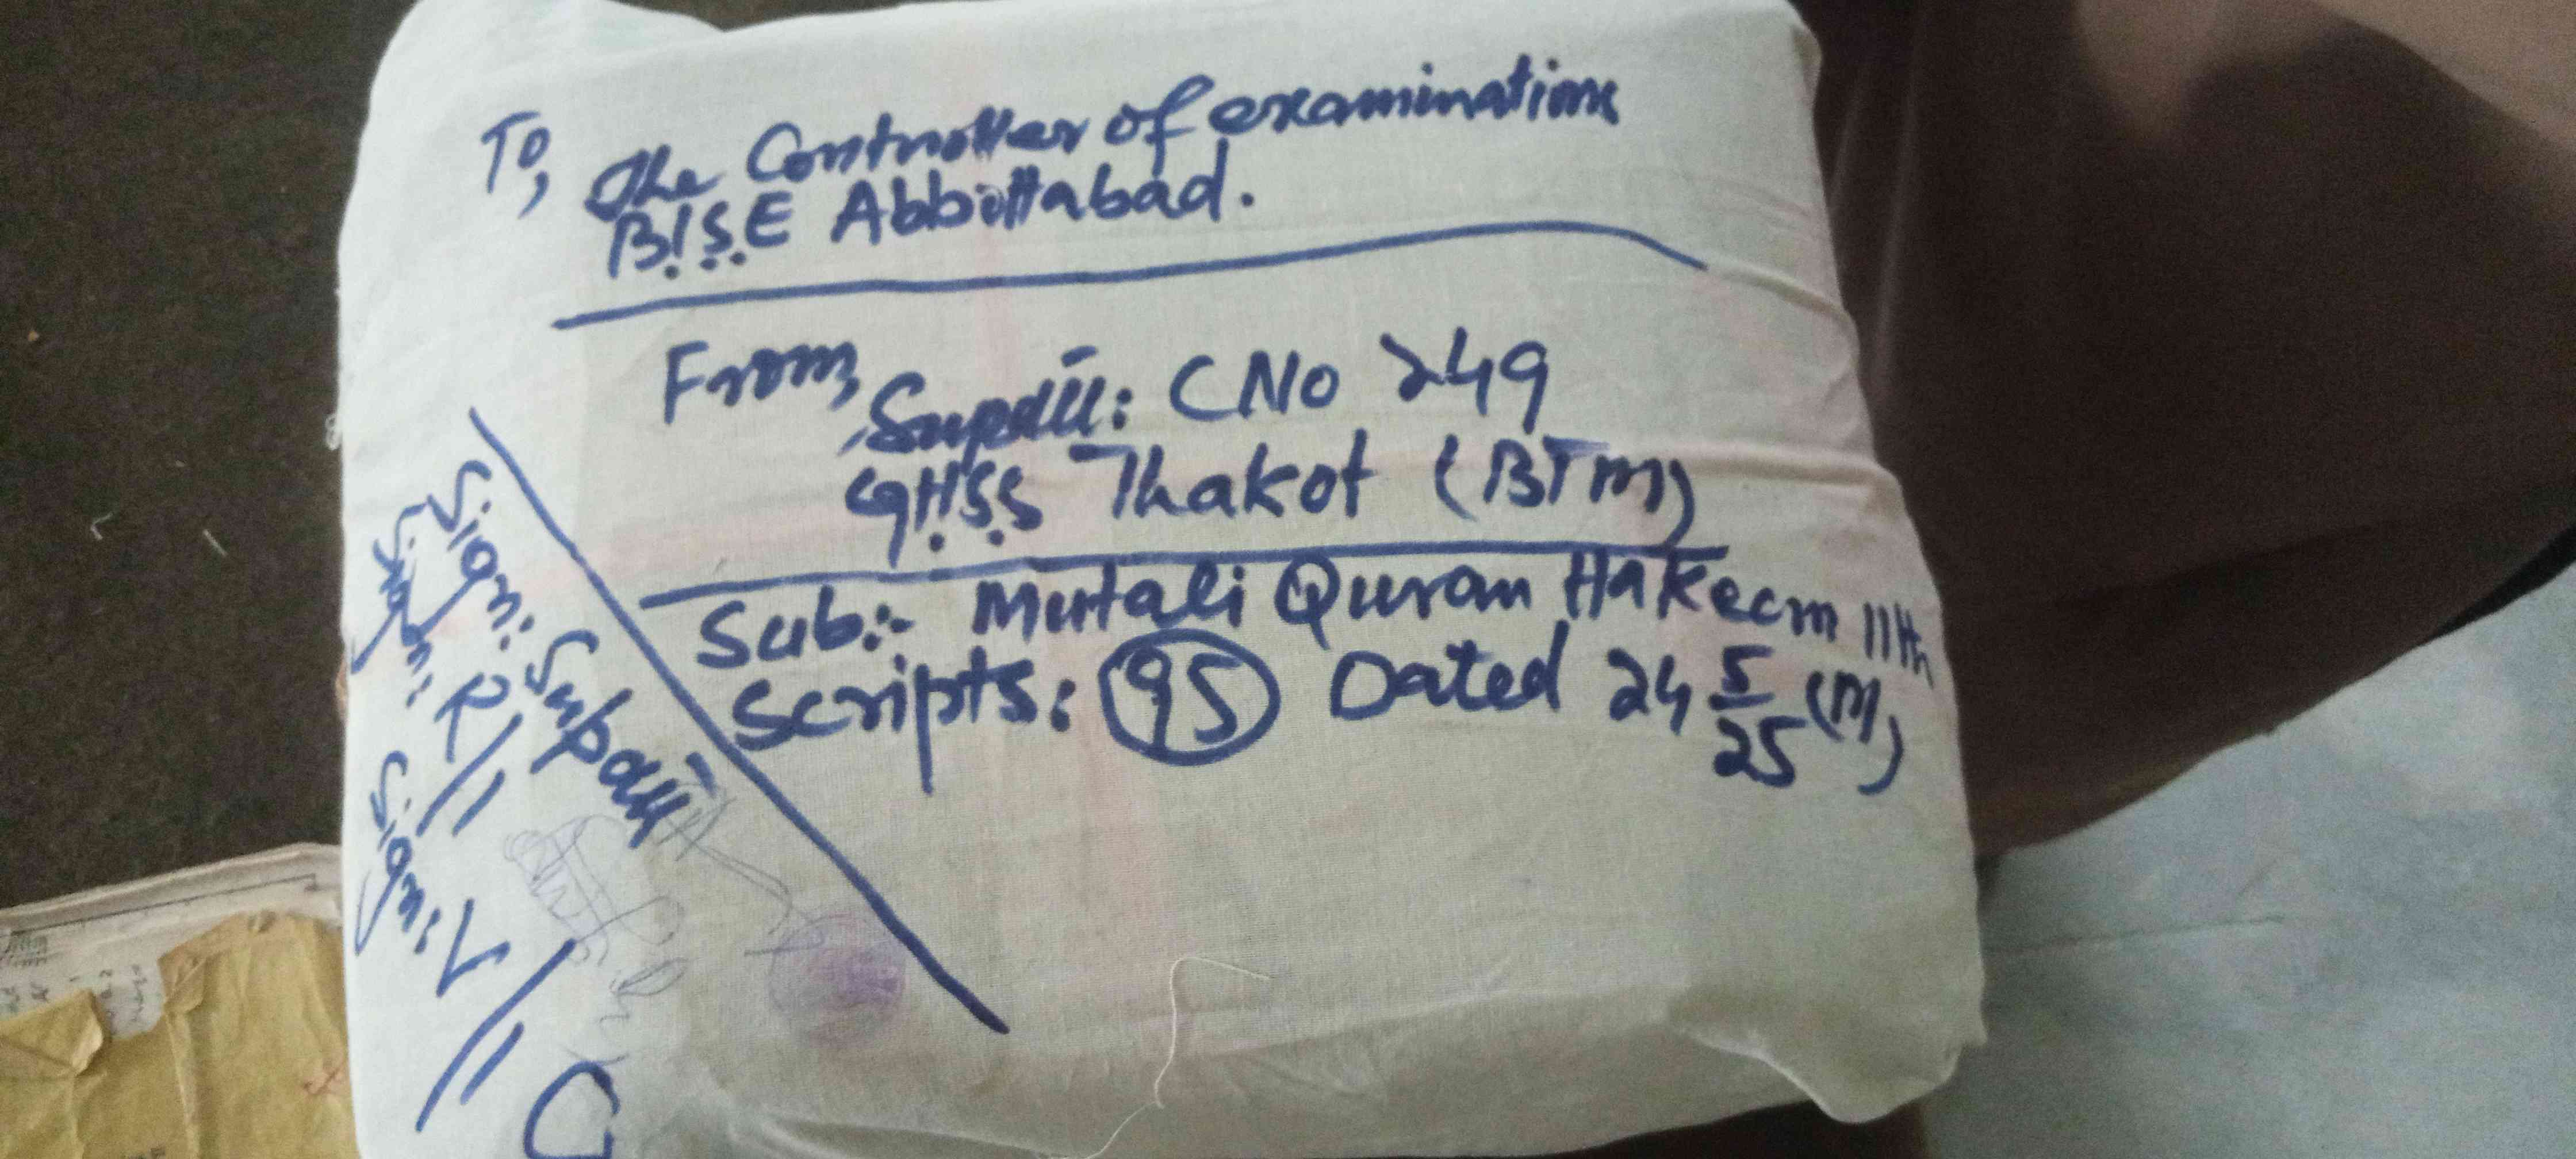 To,
The Controller of examinations
B.I.S.E Abbottabad.
From,
Supdtt: CNo 249
G.H.S.S Thakot (BTM)
Sub:- Mutali Quran Hakeem 11th
Scripts: 95 Dated 24 5/25 (M)
Sign: Supdtt
Sign: R//
Sign: V//